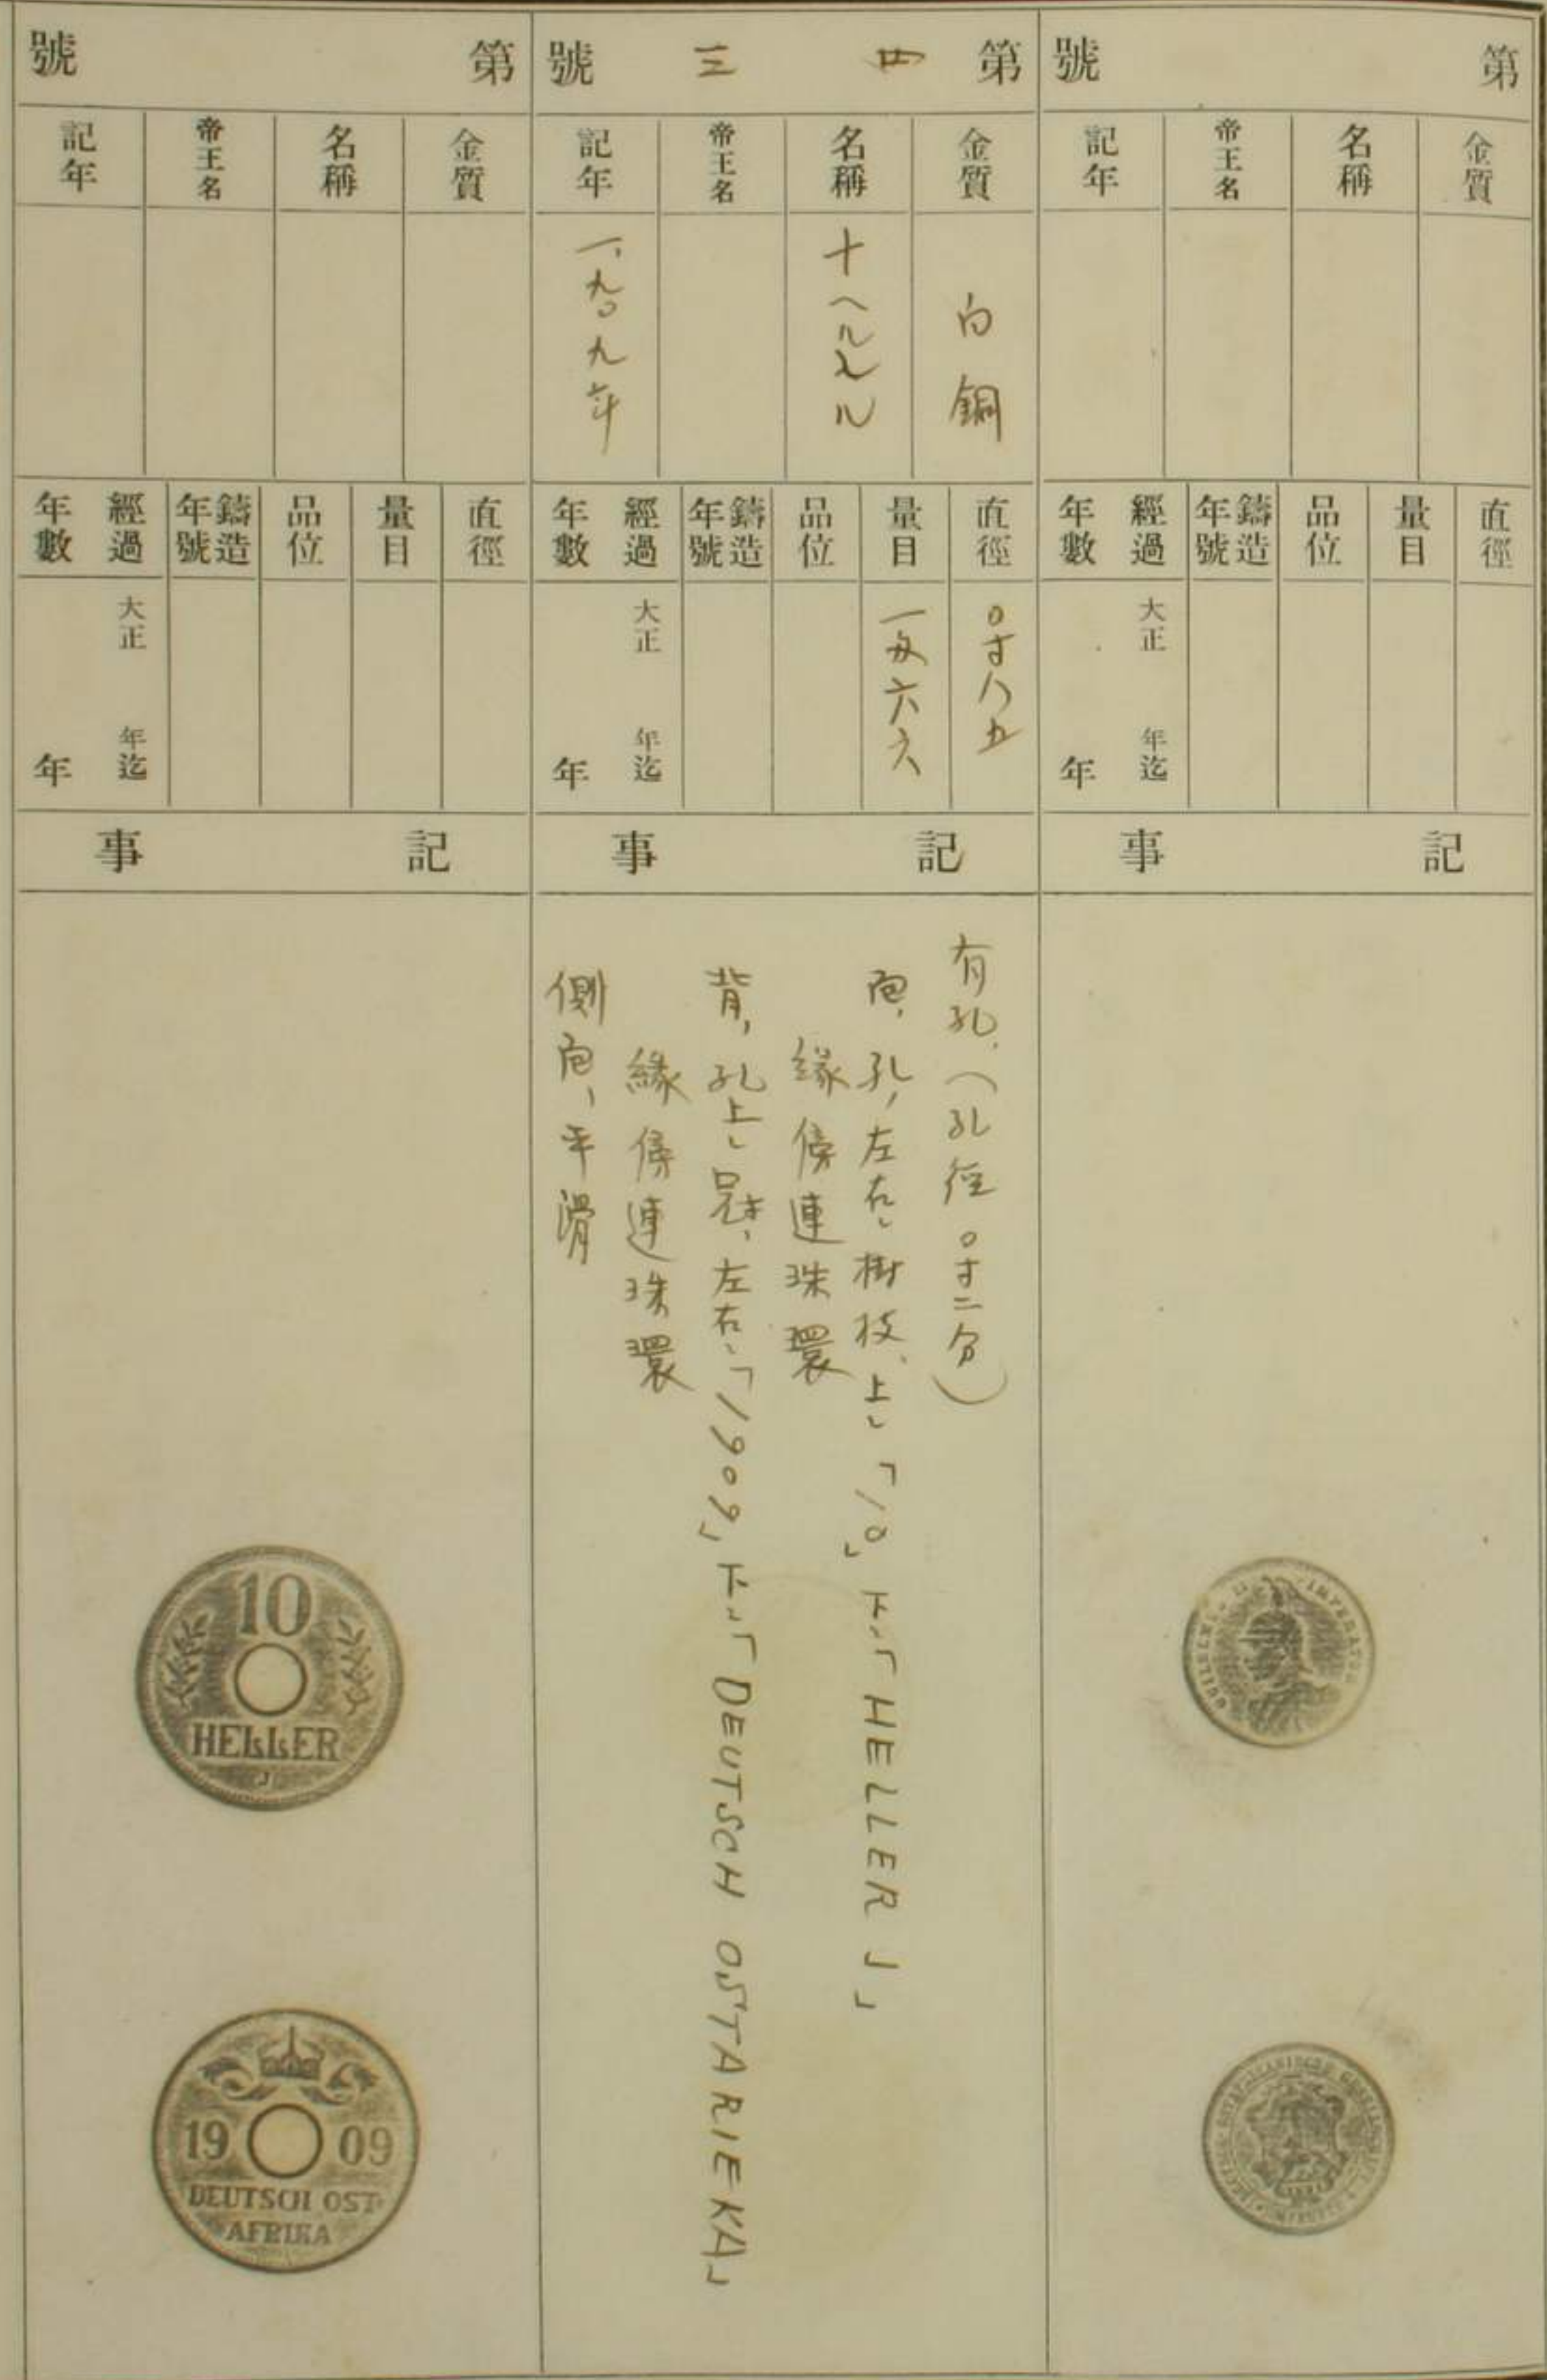 第 號
金質
名稱
帝王名
記年
直徑
量目
品位
鑄造年號
經過年數
大正 年迄
年
記事
IMPERATOR
第四三號
金質
白銅
名稱
十ヘルレル
帝王名
記年
一、九〇九年
直徑
〇寸八五
量目
一匁六六
品位
鑄造年號
經過年數
大正 年迄
年
記事
有孔、(孔徑〇寸二分)
面、孔ノ左右ニ樹枝、上ニ「10」下ニ「HELLER J」
緣傍連珠環
背、孔上ニ冠、左右ニ「1909」下ニ「DEUTSCH OSTARIEKA」
緣傍連珠環
側面、平滑
第 號
金質
名稱
帝王名
記年
直徑
量目
品位
鑄造年號
經過年數
大正 年迄
年
記事
10
HELLER
J
19 09
DEUTSCH OST-
AFRIKA